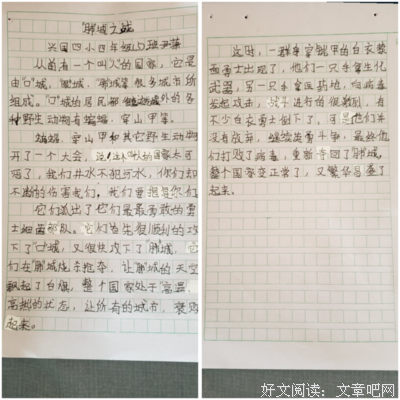 "肺城"之战
兴国四小四年级
从前有一个叫"人"的国家,它是
由"口"城,"喉"城,"肺"城等很多城市所
组成。"口"城的居民却 外的各
种野生动物有蝙蝠,穿山甲等。
蝙蝠,穿山甲和其它野生动物
开了一个大会,说:这个"人"的国家太可
恶了,我们井水不犯河水,你们却
不断的伤害我们,我们要
它们派出了它们最勇敢的勇
士细菌部队。它们首先很顺利的攻
下了"口"城,又很快攻下了"肺"城,它
们在"肺"城烧杀抢夺,让"肺"城的天空
飘起了白旗,整个国家处于"高温,
高热"的状态,让所有的城市,衰败
起来。
这时,一群身穿铠甲的白衣装
西勇士出现了,他们一只手拿生化
武器,另一只手拿医药箱,向病毒
发起攻击,战斗进行的很激烈,有
不少白衣勇士倒下了,可是他们并
没有放弃,继续英勇斗争,最终他
们打败了病毒,重新夺回了"肺"城,
整个国家变正常了,又繁华昌盛了
起来。
好文阅读:文章吧网